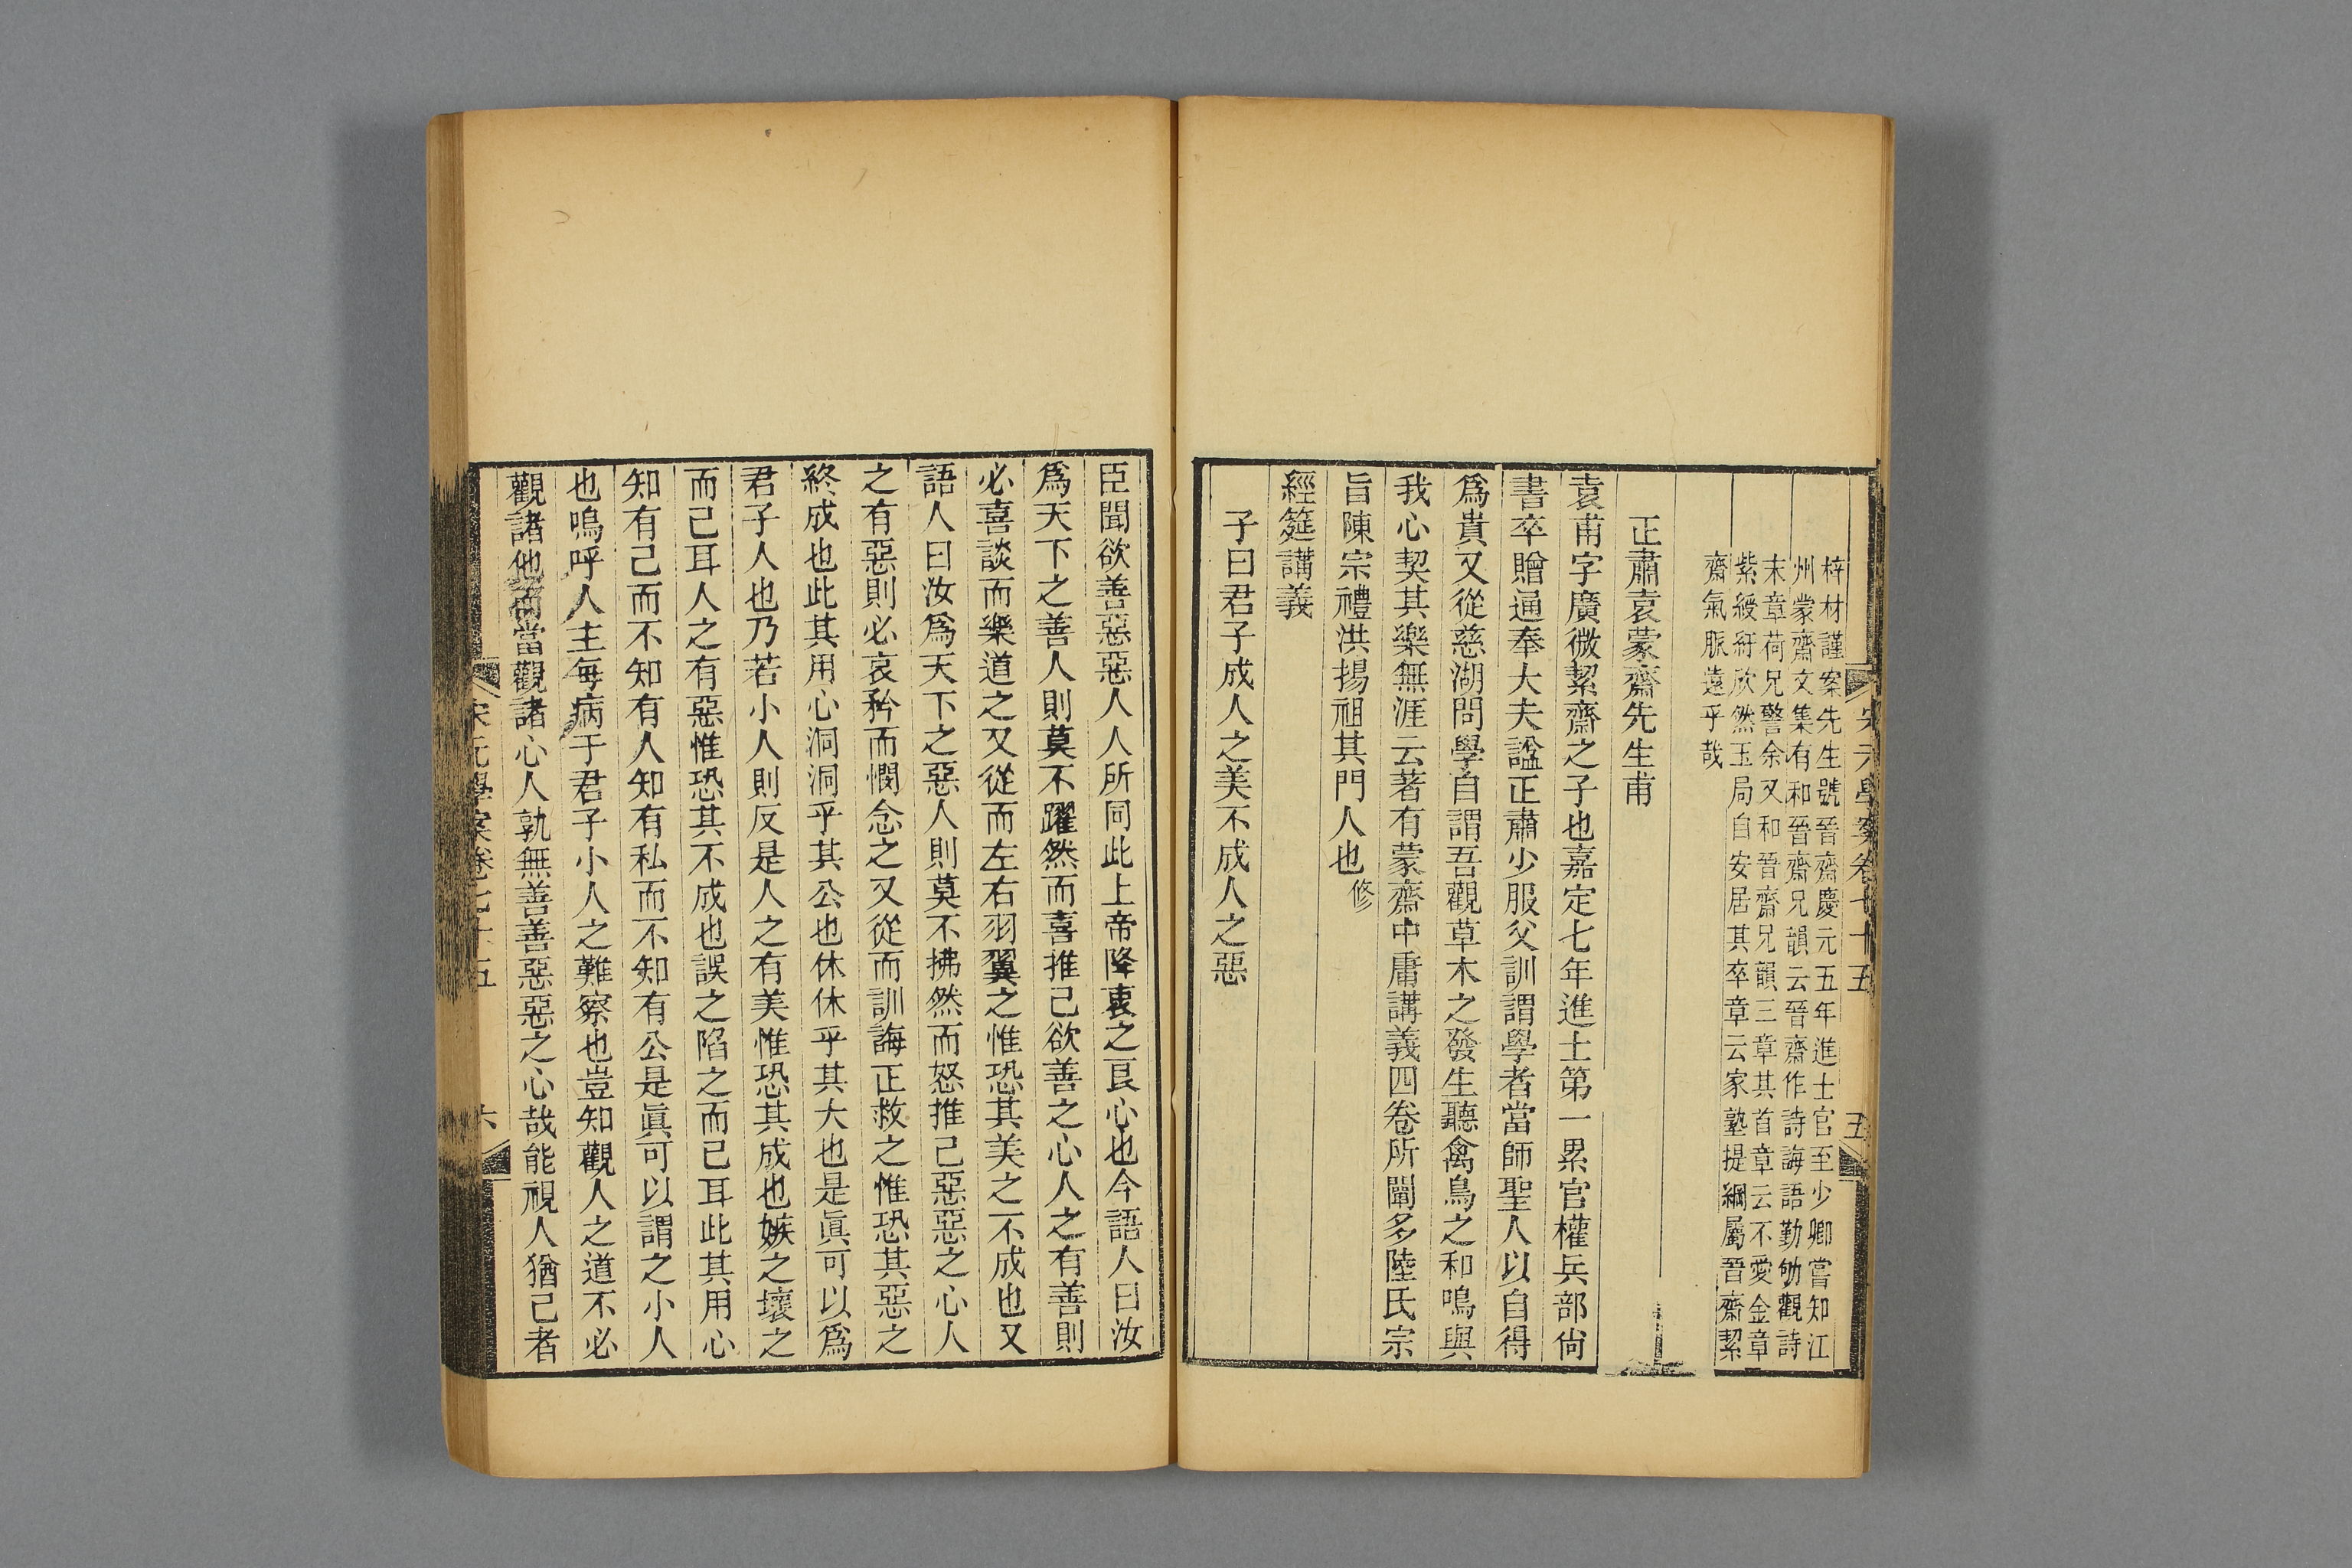 宋元學案卷七十五
五
梓材謹案先生號晉齋慶元五年進士官至少卿嘗知江
州蒙齋文集有和晉齋兄韻云晉齋作詩誨語勤劬觀詩
末章荷兄警余又和晉齋兄韻三章其首章云不愛金章
紫綬紆欣然玉局自安居其卒章云家塾提綱屬晉齋絜
齋氣脈遠乎哉
正肅袁蒙齋先生甫
袁甫字廣微絜齋之子也嘉定七年進士第一累官權兵部尙
書卒贈通奉大夫諡正肅少服父訓謂學者當師聖人以自得
爲貴又從慈湖問學自謂吾觀草木之發生聽禽鳥之和鳴與
我心契其樂無涯云著有蒙齋中庸講義四卷所闡多陸氏宗
旨陳宗禮洪揚祖其門人也修
經筵講義
子曰君子成人之美不成人之惡
臣聞欲善惡惡人人所同此上帝降衷之良心也今語人曰汝
爲天下之善人則莫不躍然而喜推己欲善之心人之有善則
必喜談而樂道之又從而左右羽翼之惟恐其美之不成也又
語人曰汝爲天下之惡人則莫不拂然而怒推己惡惡之心人
之有惡則必哀矜而憫念之又從而訓誨正救之惟恐其惡之
終成也此其用心洞洞乎其公也休休乎其大也是眞可以爲
君子人也乃若小人則反是人之有美惟恐其成也嫉之壞之
而己耳人之有惡惟恐其不成也誤之陷之而已耳此其用心
知有己而不知有人知有私而不知有公是眞可以謂之小人
也嗚呼人主每病于君子小人之難察也豈知觀人之道不必
觀諸他而當觀諸心人孰無善善惡惡之心哉能視人猶己者
宋元學案卷七十五
六